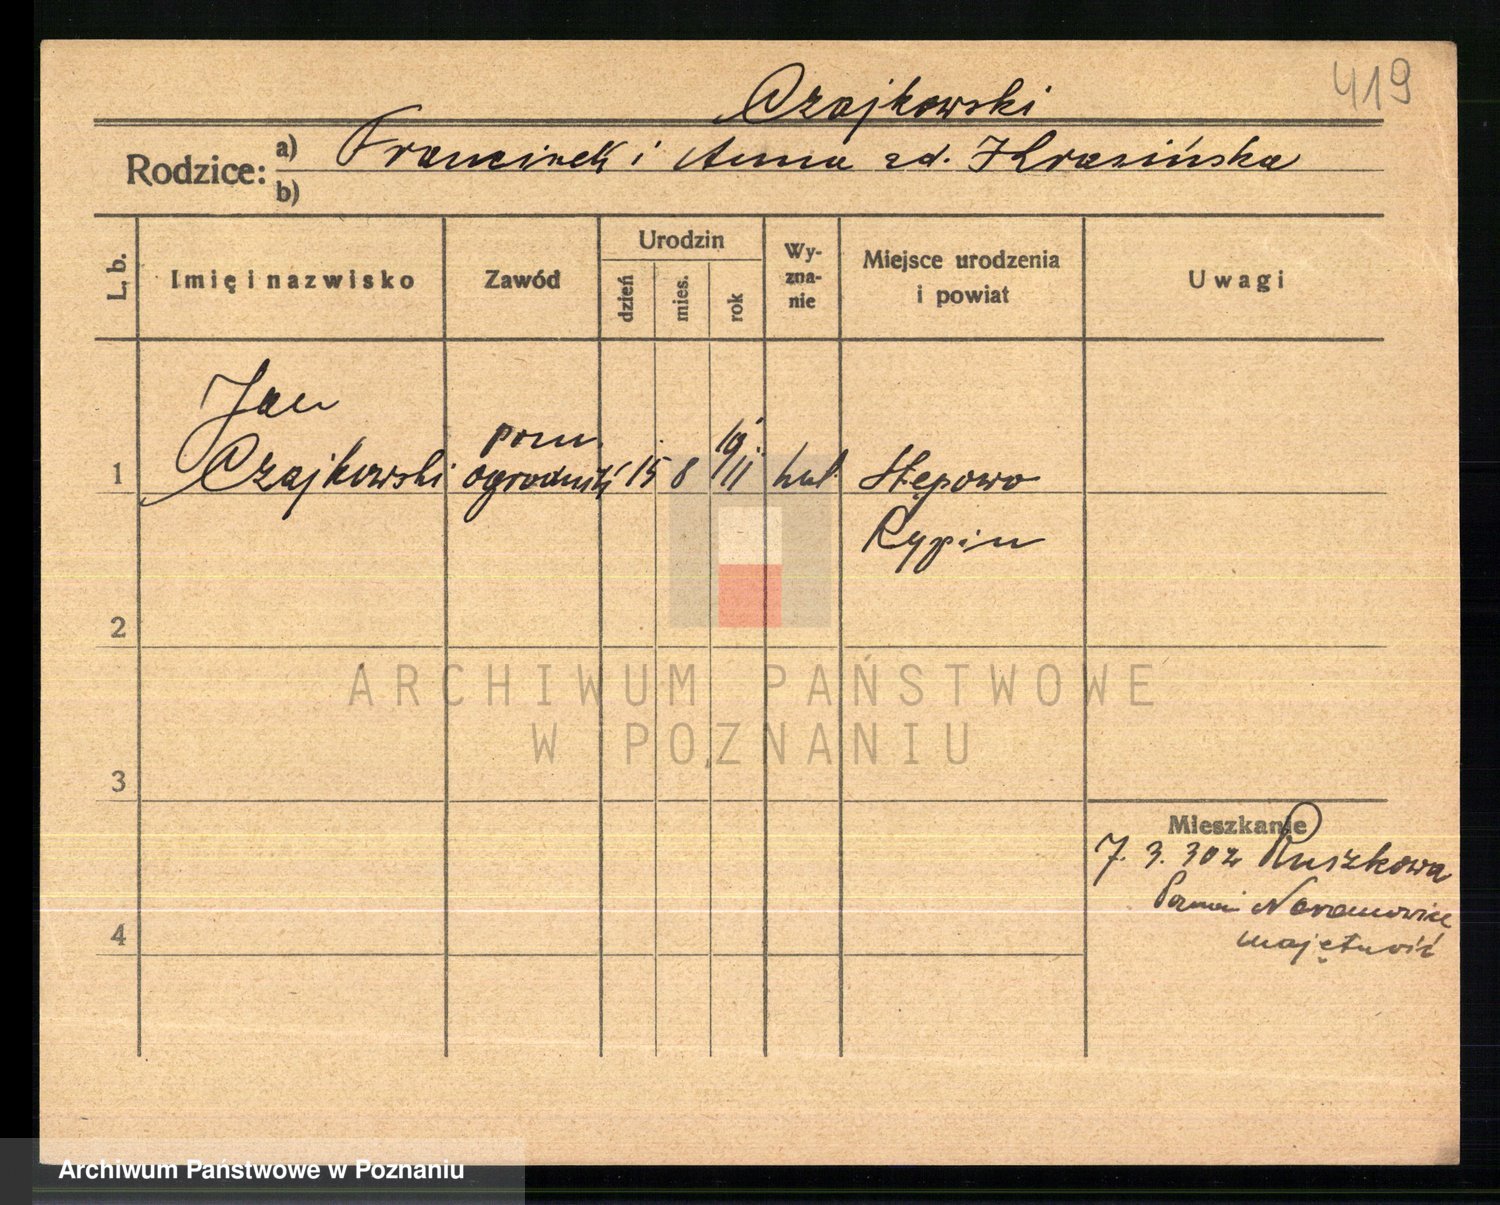 419
Czajkowski
Rodzice: a) Franciszek i Anna zd. Krasińska
b)
L. b. Imię i nazwisko Zawód Urodzin dzień mies. rok Wy-zna-nie Miejsce urodzenia i powiat Uwagi
Jan
pom.
1 Czajkowski ogrodnik 15 8 1911 kat Stępowo
Rypin
2
ARCHIWUM PAŃSTWOWE
W POZNANIU
3
Mieszkanie
7. 3. 30 z Ruszkowa
Naramowice
majętność
4
Archiwum Państwowe w Poznaniu